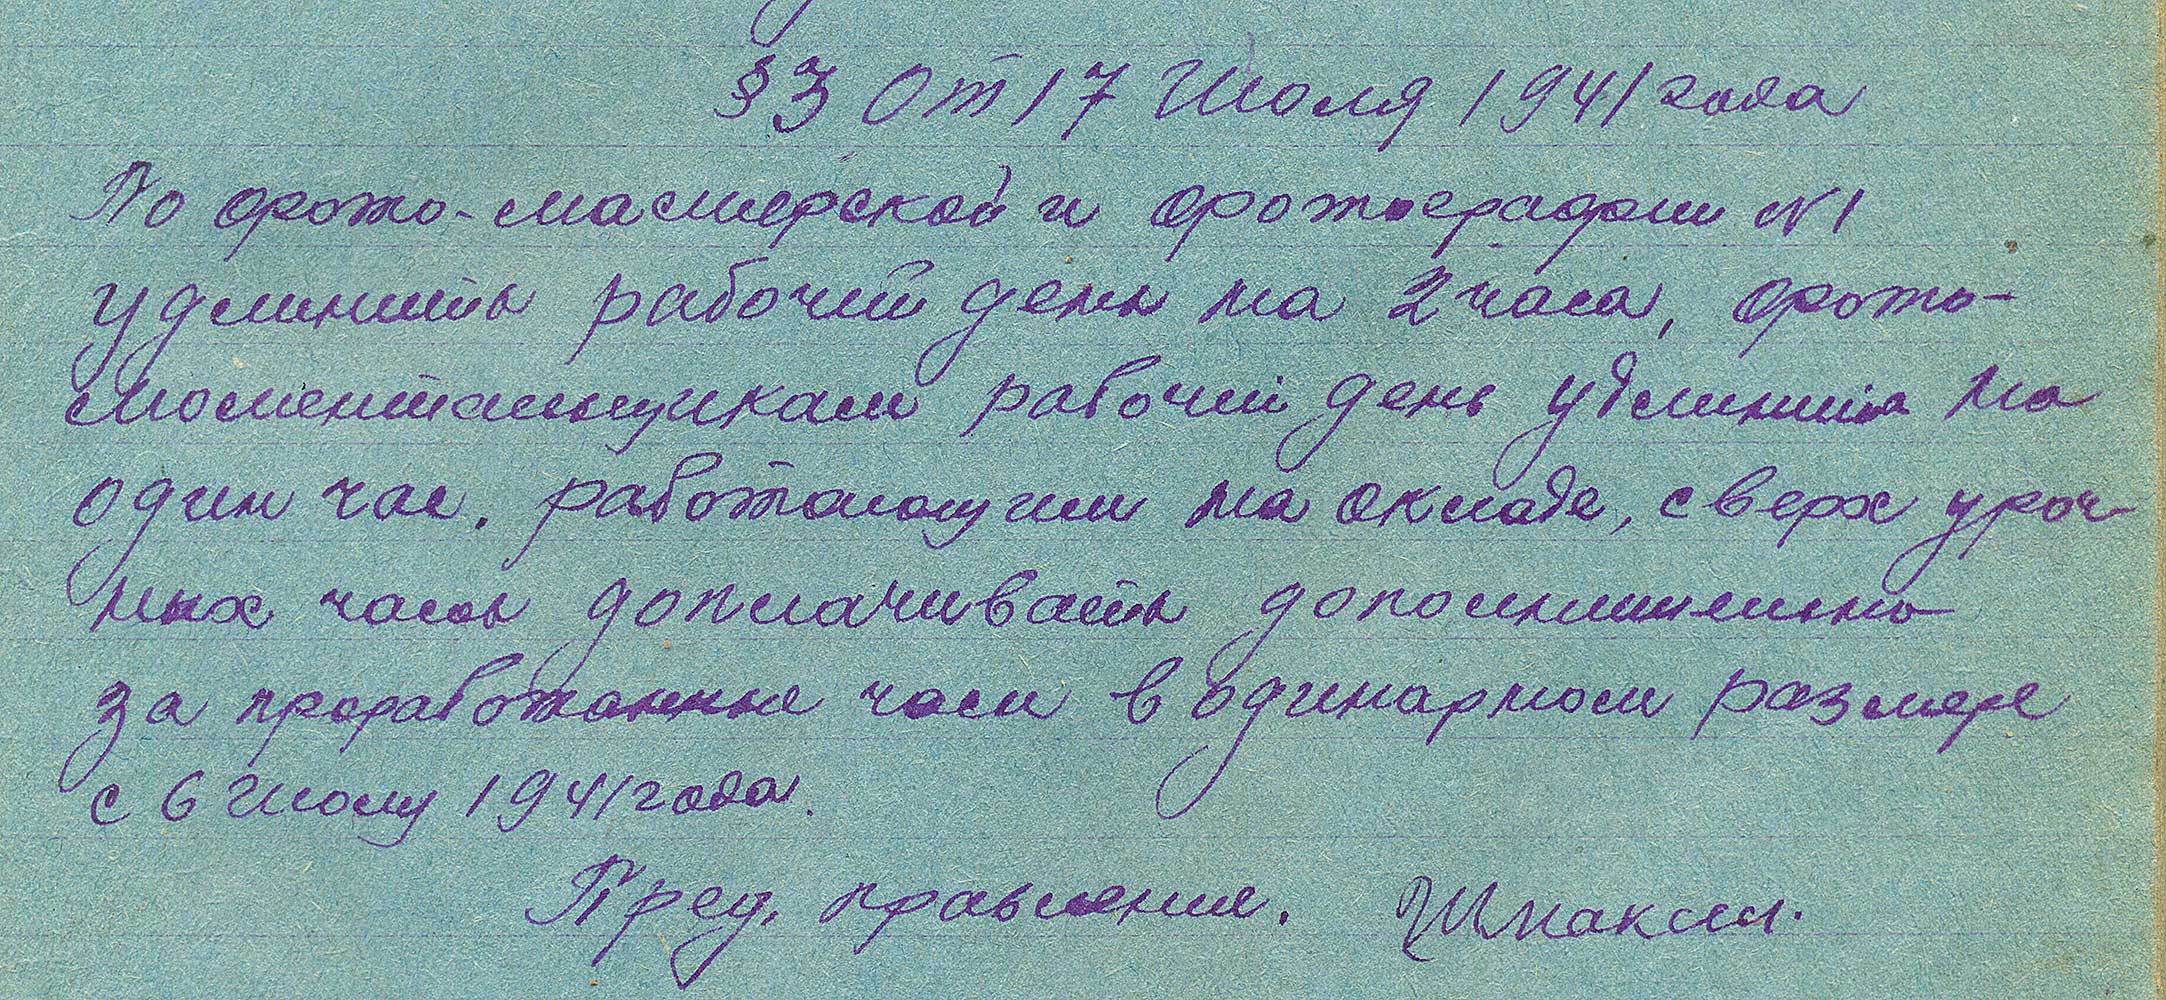 §3 От 17 Июля 1941 года
По фото-мастерской и фотографии №1
удлинить рабочий день на 2 часа, фото-
моментальщикам рабочий день удлинить на
один час. работающим на окладе, сверх уроч-
ных часы доплачивать дополнительно
за проработанные часы в одинарном размере
с 6 Июлу 1941 года.
Пред. правления.